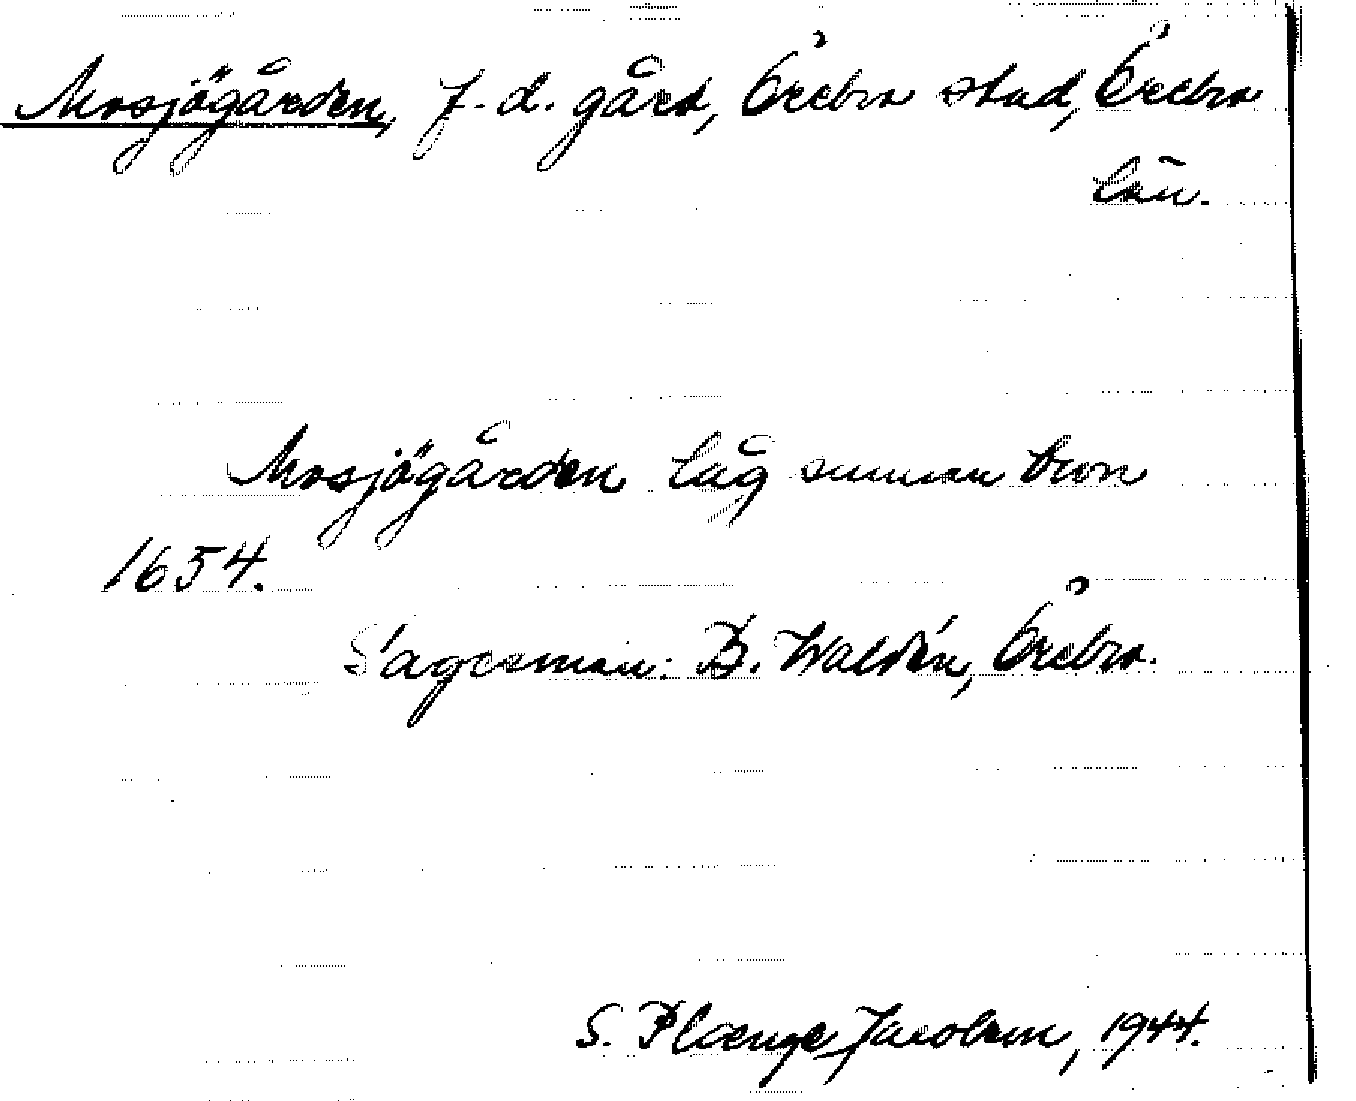 Mosjögården, f. d. gård, Örebro stad, Örebro
län.
Mosjögården låg sunnan bron
1654.
Sagesman: B. Waldén, Örebro.
S. Plaenge Jacobson, 1944.